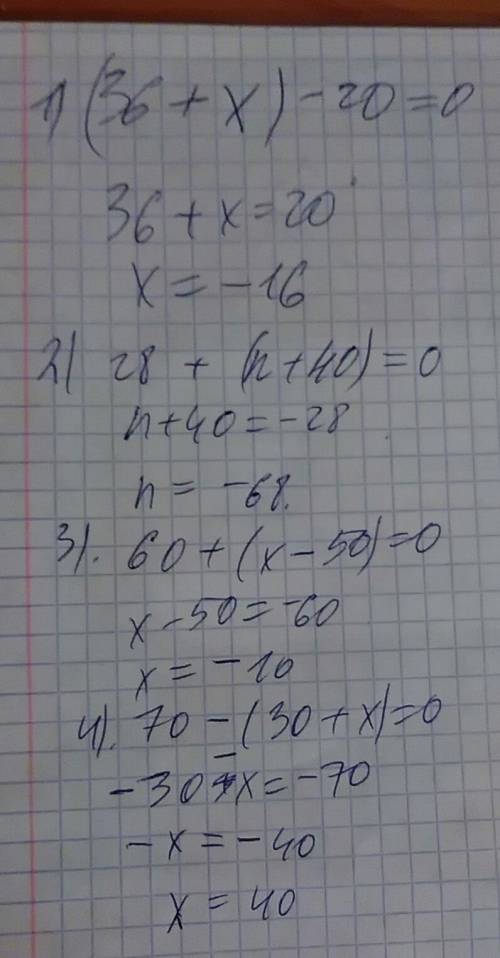 1) (36 + x) - 20 = 0
36 + x = 20
x = -16
2) 28 + (n + 40) = 0
n + 40 = -28
n = -68.
3). 60 + (x - 50) = 0
x - 50 = -60
x = -10
4). 70 - (30 + x) = 0
-30 - x = -70
-x = -40
x = 40